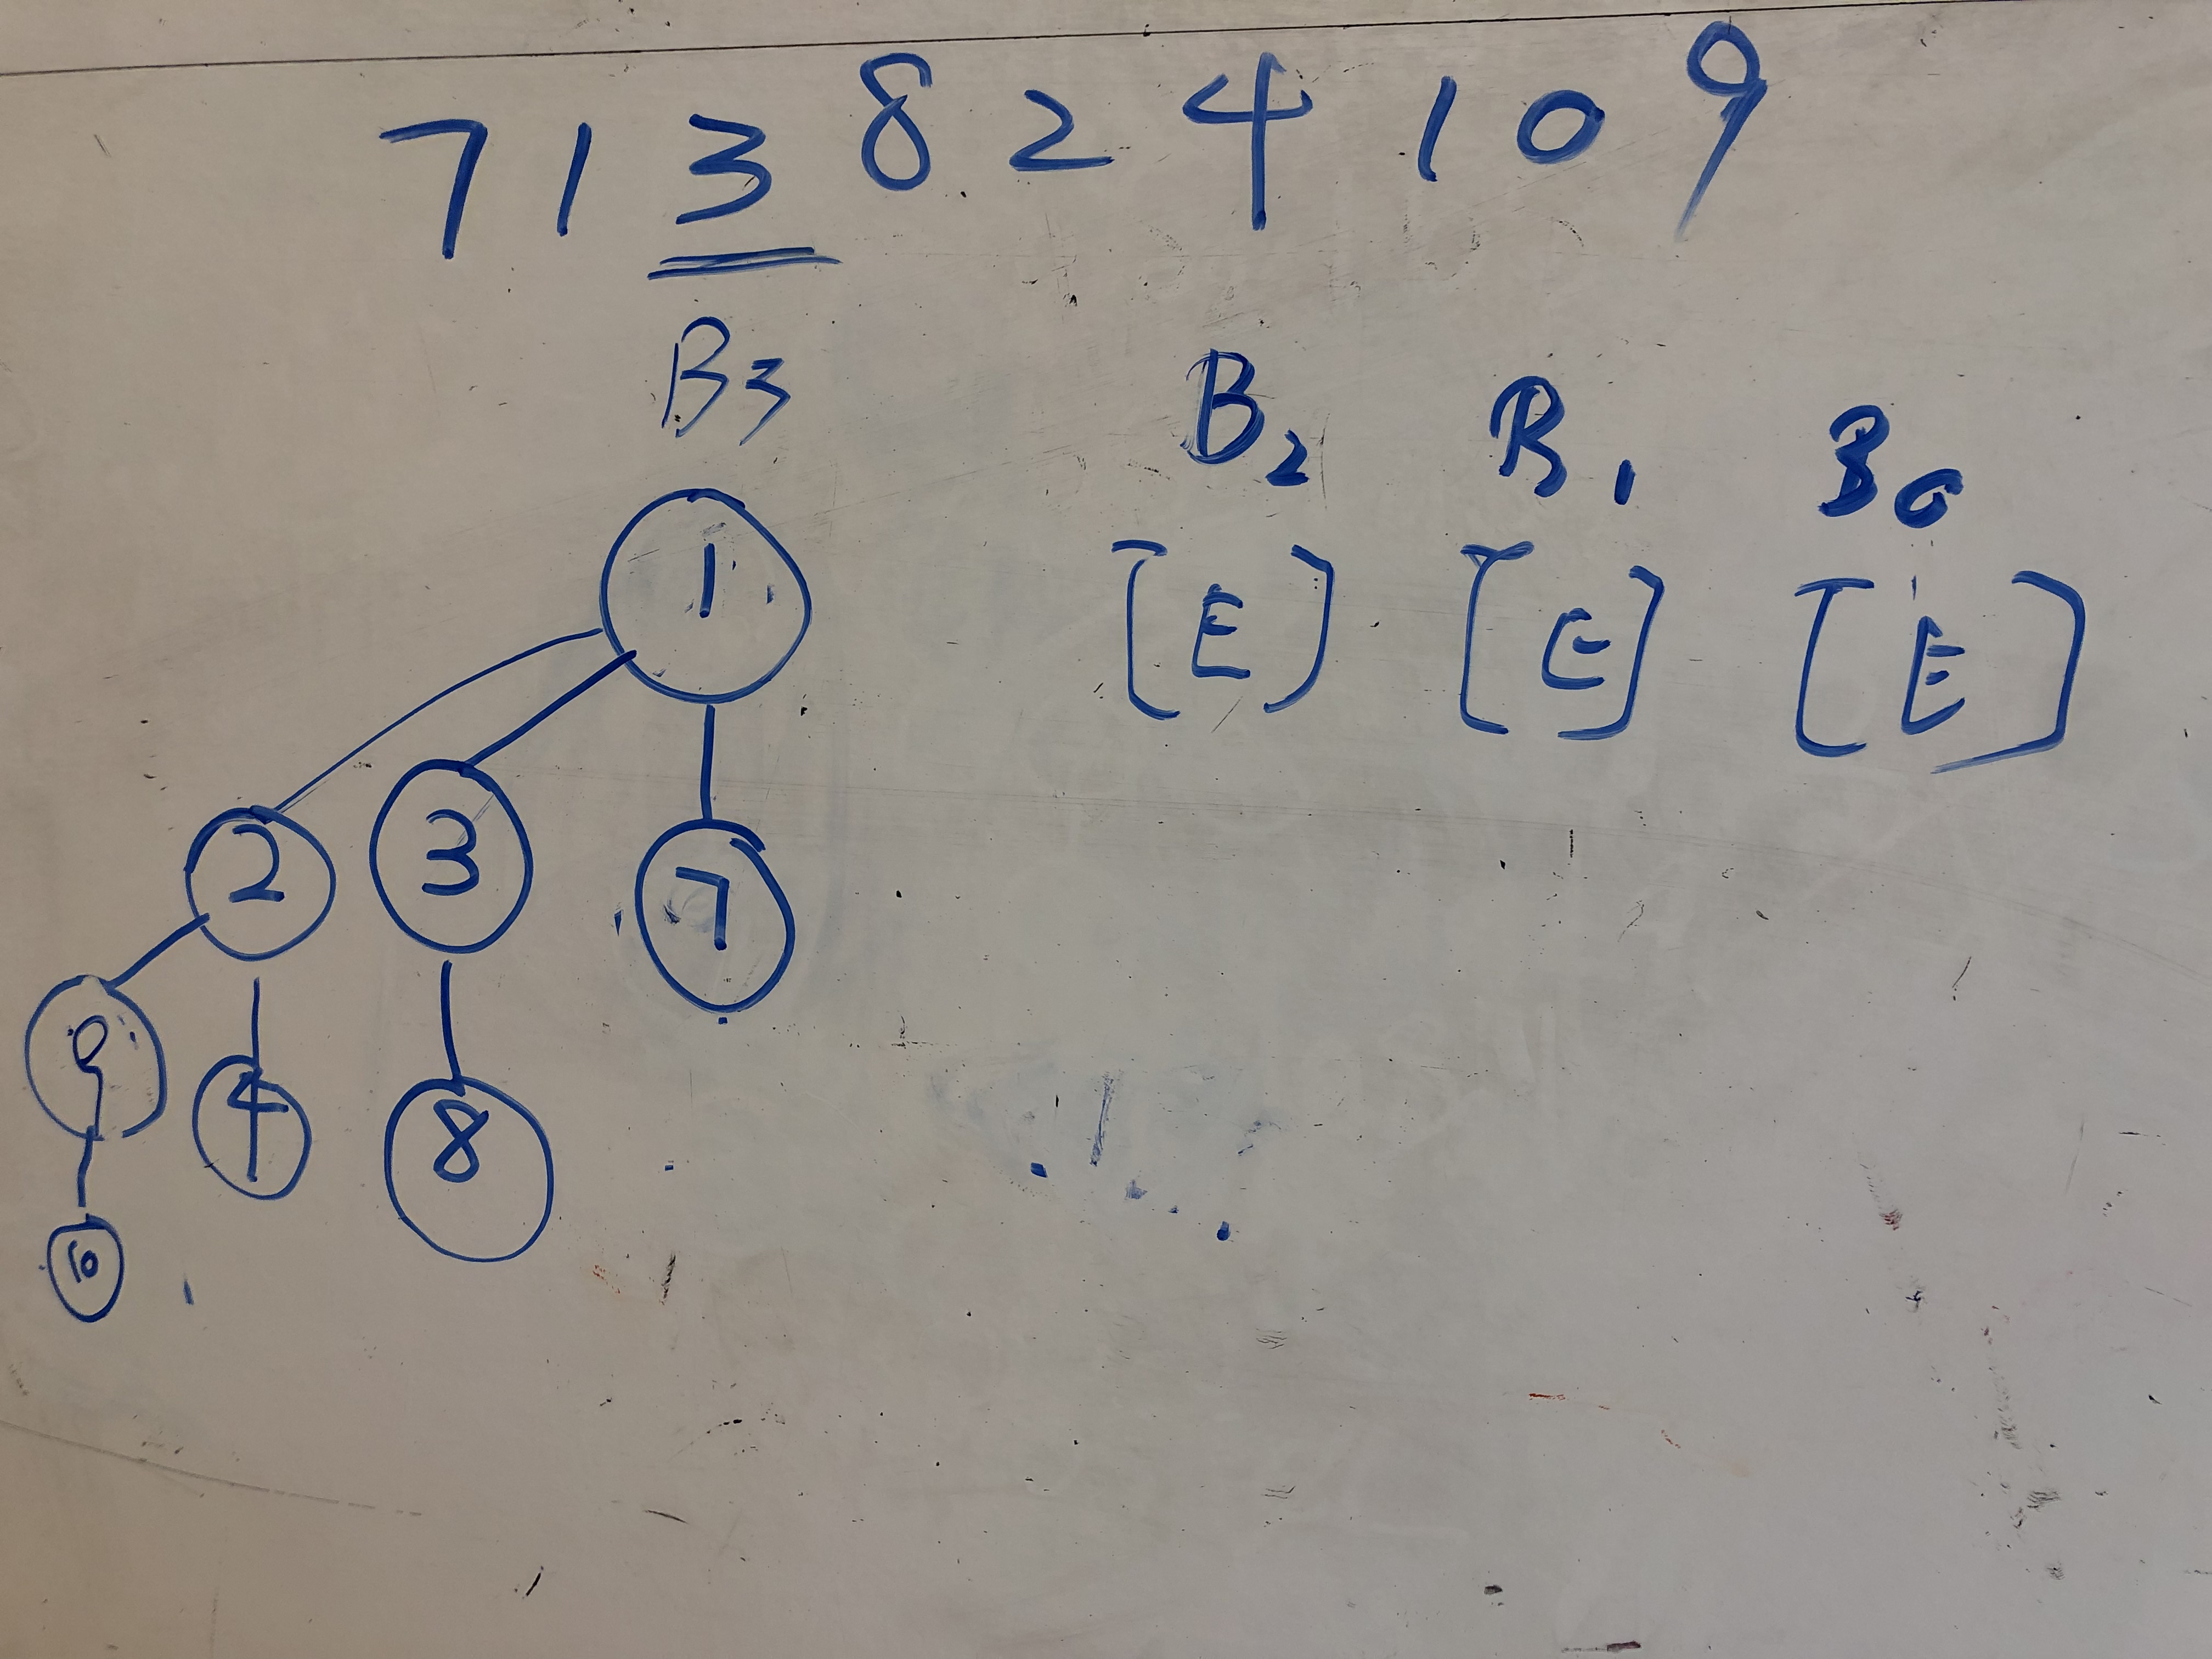 7 1 3 8 2 4 10 9
B3 B2 B1 B0
1 [E] [E] [E]
2 3 7
9 4 8
10